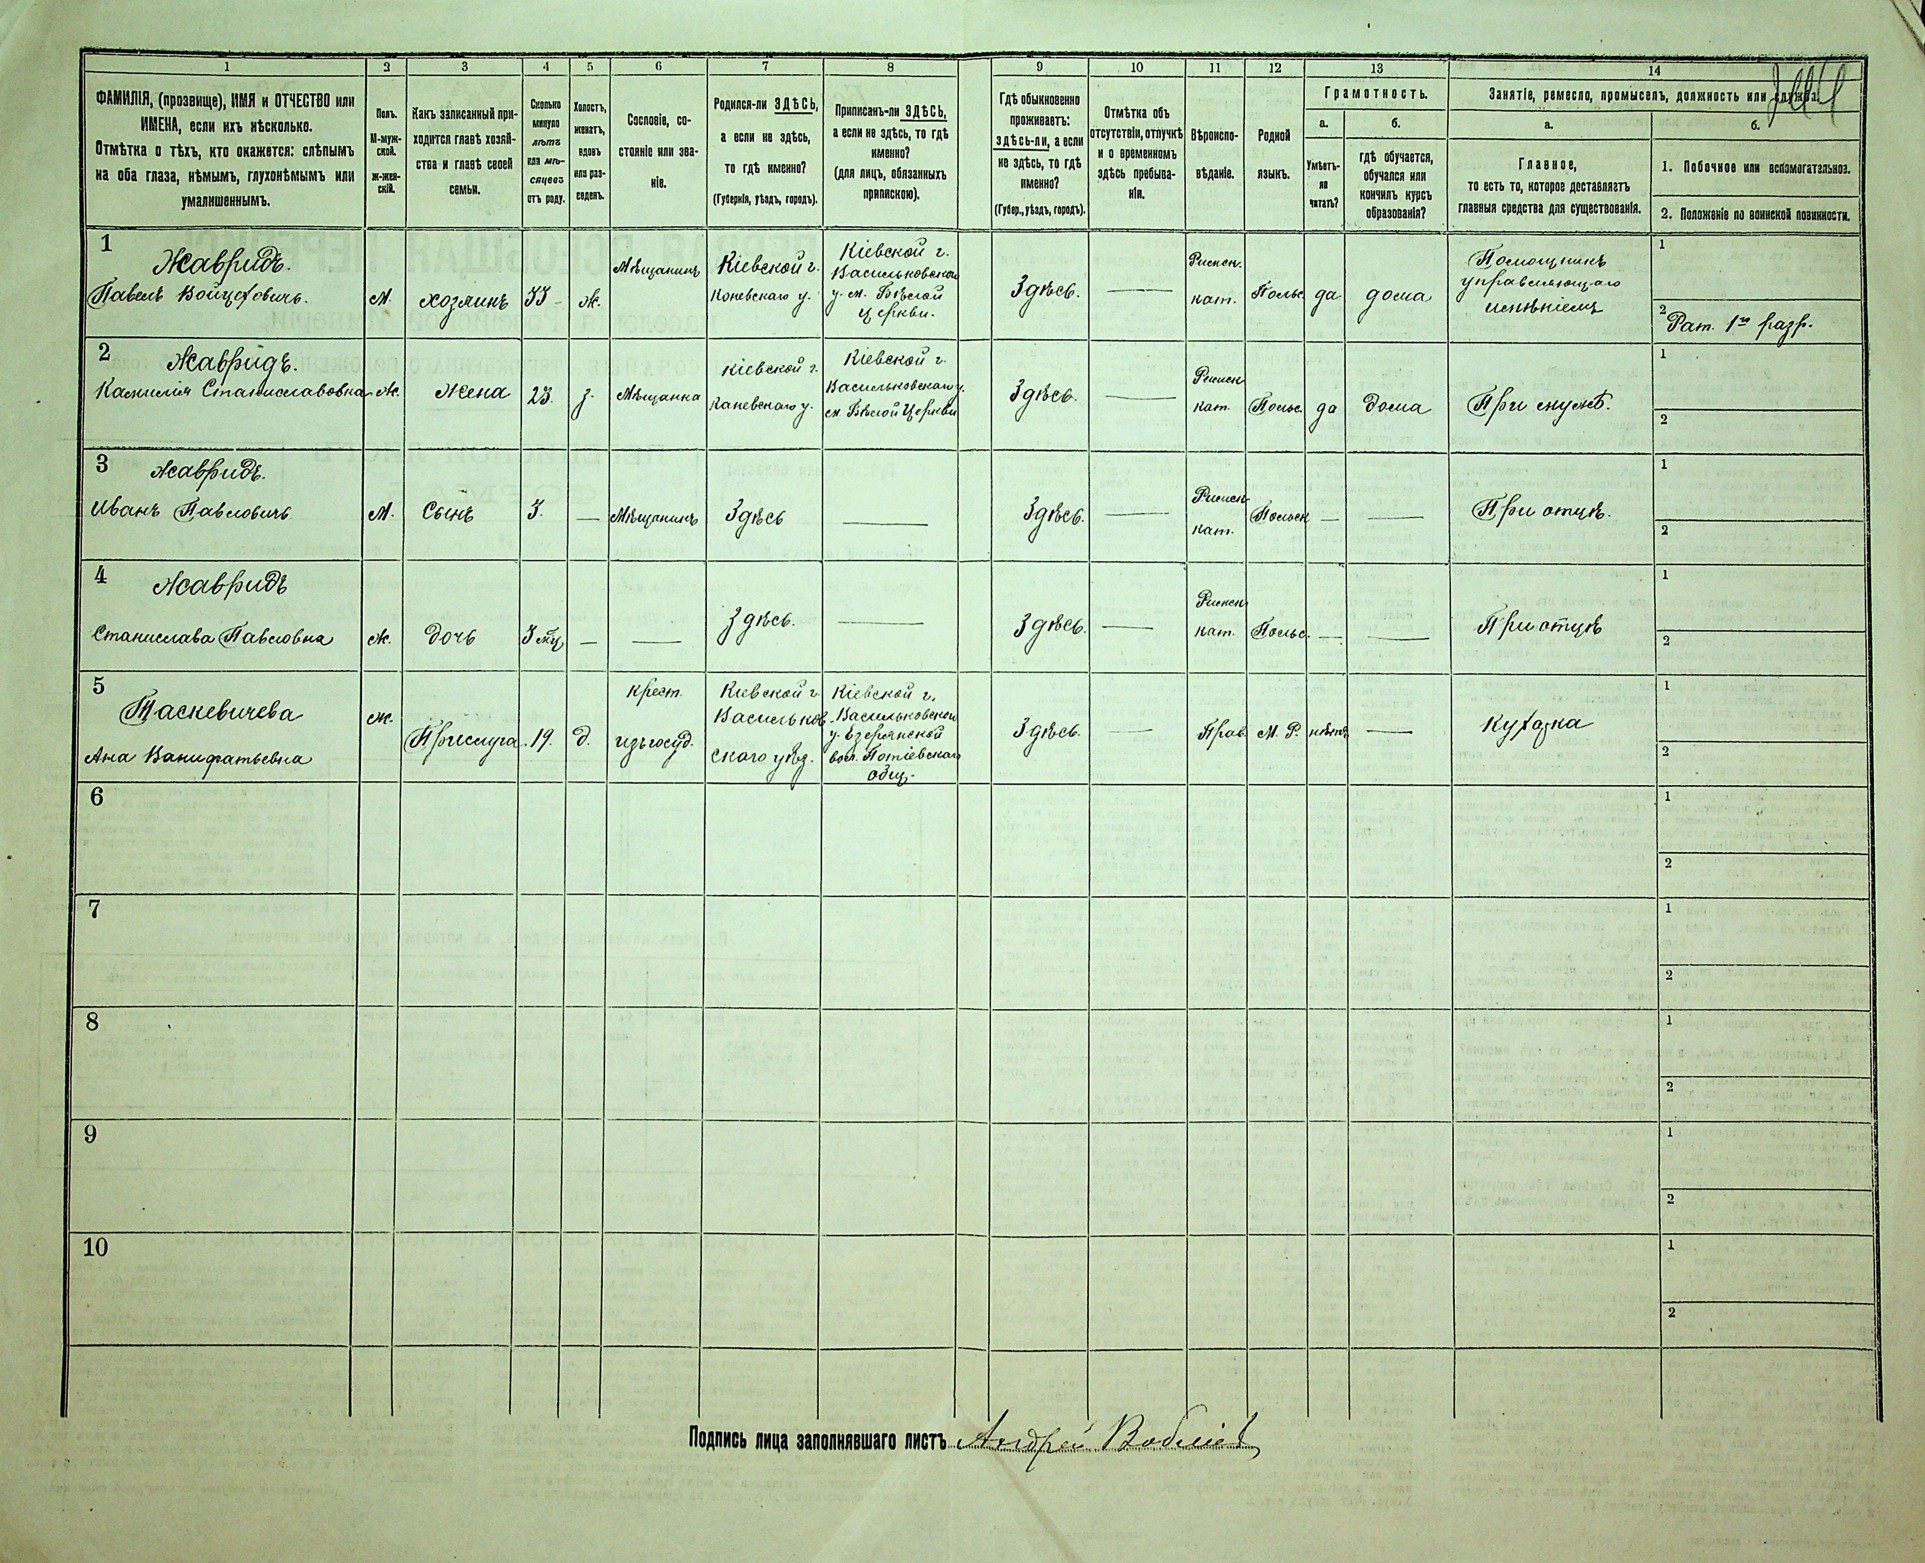 1 2 3 4 5 6 7 8 9 10 11 12 13 14
ФАМИЛІЯ, (прозвище), ИМЯ и ОТЧЕСТВО или
ИМЕНА, если ихъ нѣсколько.
Отмѣтка о тѣхъ, кто окажется: слѣпымъ
на оба глаза, нѣмымъ, глухонѣмымъ или
умалишеннымъ.
Полъ.
М-муж-
ской.
Ж-жен-
скій.
Какъ записанный при-
ходится главѣ хозяй-
ства и главѣ своей
семьи.
Сколько
минуло
лѣтъ
или мѣ-
сяцевъ
отъ роду.
Холостъ,
женатъ,
вдовъ
или раз-
веденъ.
Сословіе, со-
стояніе или зва-
ніе.
Родился-ли ЗДѢСЬ,
а если не здѣсь,
то гдѣ именно?
(Губернія, уѣздъ, городъ).
Приписанъ-ли ЗДѢСЬ,
а если не здѣсь, то гдѣ
именно?
(для лицъ, обязанныхъ
припискою).
Гдѣ обыкновенно
проживаетъ:
здѣсь-ли, а если
не здѣсь, то гдѣ
именно?
(Губер., уѣздъ, городъ).
Отмѣтка объ
отсутствіи, отлучкѣ
и о временномъ
здѣсь пребыва-
ніи.
Вѣроиспо-
вѣданіе.
Родной
языкъ.
Грамотность.
а.
Умѣетъ-
ли
читать?
б.
гдѣ обучается,
обучался или
кончилъ курсъ
образованія?
Занятіе, ремесло, промыселъ, должность или служба.
а.
Главное,
то есть то, которое доставляетъ
главныя средства для существованія.
б.
1. Побочное или вспомогательное.
2. Положеніе по воинской повинности.
1
Жавридъ.
Павелъ Войцеховичъ.
М.
хозяинъ
33
ж.
Мѣщанинъ
Кіевской г.
Коневскаго у.
Кіевской г.
Васильковской
у. м. Бѣлой
Церкви.
Здѣсь.
—
Римск.
кат.
Польс.
да
дома
Помощникъ
управляющаго
имѣніемъ
1
2
Рат. 1го разр.
2
Жавридъ.
Камилія Станиславовна
Ж.
Жена
23.
з.
Мѣщанка
Кіевской г.
Каневскаго у.
Кіевской г.
Васильковскаго у.
м. Бѣлой Церкви
Здѣсь.
—
Римск
кат.
Польс.
да
дома
При мужѣ.
1
2
3
Жавридъ.
Иванъ Павловичъ
М.
Сынъ
3.
—
Мѣщанинъ
Здѣсь
—
Здѣсь.
—
Римск
кат.
Польск
—
—
При отцѣ.
1
2
4
Жавридъ
Станислава Павловна
Ж.
дочь
3 мц
—
—
Здѣсь.
—
Здѣсь.
—
Римск
кат.
Польс.
—
—
При отцѣ
1
2
5
Таскевичева
АнаВанифатьевна
Ж.
Прислуга
19.
д.
крест.
изъ госуд.
Кіевской г.
Васильков
скаго уѣз.
Кіевской г.
Васильковской
у. Езерянской
вол. Потіевскаго
общ.
Здѣсь.
—
Прав.
М. Р.
нѣтъ
—
Кухарка
1
2
6
1
2
7
1
2
8
1
2
9
1
2
10
1
2
Подпись лица заполнявшаго листъ Андрей